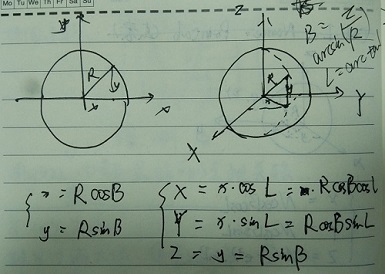 Mo Tu We Th Fr Sa Su
y
R
y
x
x
Z
B =
arcsin(Z/R)
L = arctan
R
y
x
Y
X
x = R cosB
y = R sinB
X = x · cos L = R cosB cosL
Y = x · sin L = R cosB sin L
Z = y = R sinB